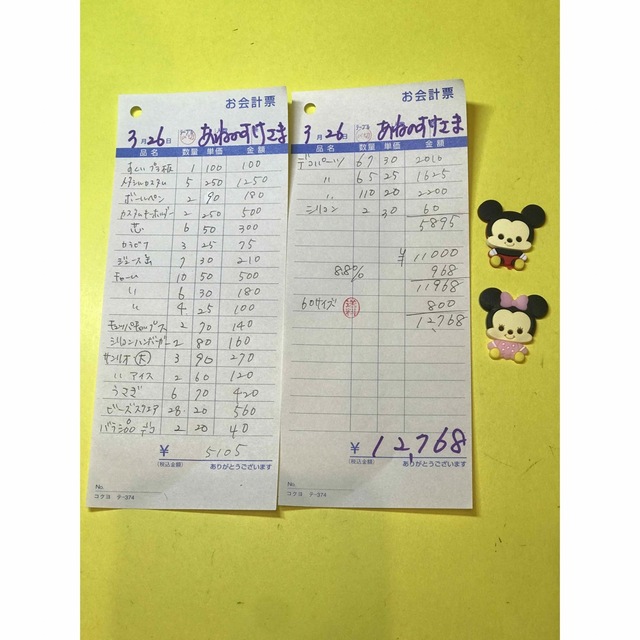 お会計票
3月26日 あねのすけさま
品名 数量 単価 金額
1 100 100
5 250 1250
ボールペン 2 90 180
カスタムキーホルダー 2 250 500
芯 6 50 300
3 25 75
ジュース缶 7 30 210
チャーム 10 50 500
〃 6 30 180
〃 4 25 100
2 70 140
シリコンハンバーガー 2 80 160
サンリオ 大 3 90 270
〃 アイス 2 60 120
うさぎ 6 70 420
ビーズスクエア 28 20 560
バラ デコ 2 20 40
¥ 5105
(税込金額) ありがとうございます
No.
コクヨ テ-374
お会計票
3月26日 あねのすけさま
品名 数量 単価 金額
デコパーツ 67 30 2010
〃 65 25 1625
〃 110 20 2200
シリコン 2 30 60
5895
¥11000
8.8% 968
11968
60サイズ 800
12768
¥12,768
(税込金額) ありがとうございます
No.
コクヨ テ-374